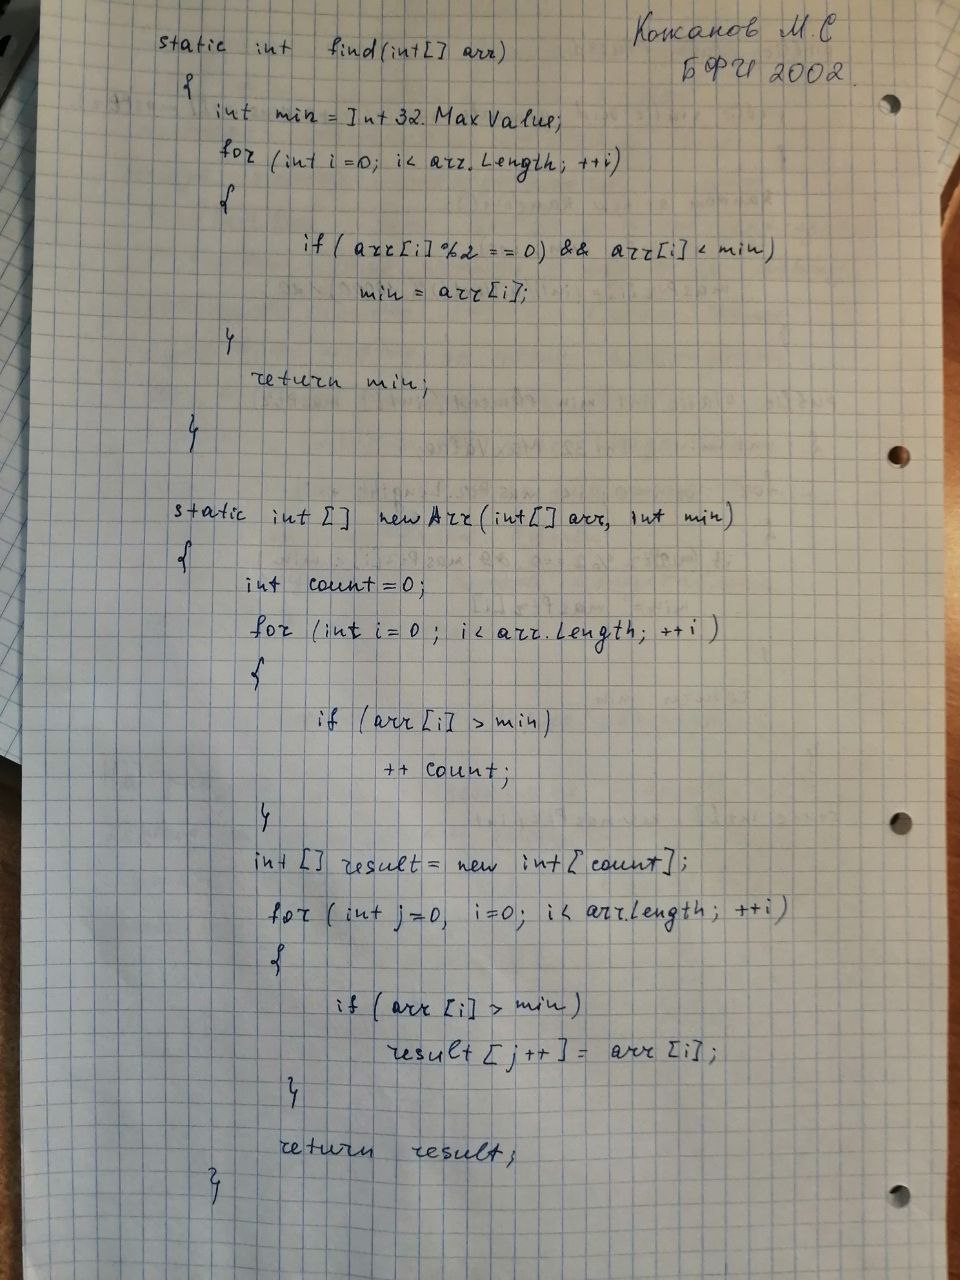 Кожанов М.С
БФИ 2002.
static int find(int[] arr)
{
int min = Int32.MaxValue;
for (int i=0; i< arr.Length; ++i)
{
if( arr[i] %2 == 0) && arr[i] < min)
min = arr[i];
}
return min;
}
static int [] newArr(int[] arr, int min)
{
int count=0;
for (int i=0; i< arr.Length; ++i)
{
if (arr[i] > min)
++ count;
}
int [] result = new int[count];
for (int j=0, i=0; i< arr.Length; ++i)
{
if (arr [i] > min)
result [j++] = arr [i];
}
return result;
}